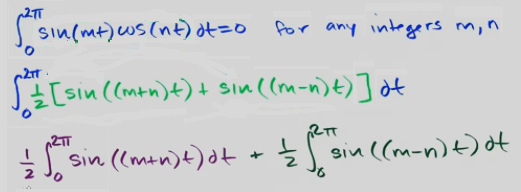 ∫₀^{2π} sin(mt) cos(nt) dt = 0 for any integers m, n
∫₀^{2π} ½ [sin((m+n)t) + sin((m-n)t)] dt
½ ∫₀^{2π} sin((m+n)t) dt + ½ ∫₀^{2π} sin((m-n)t) dt